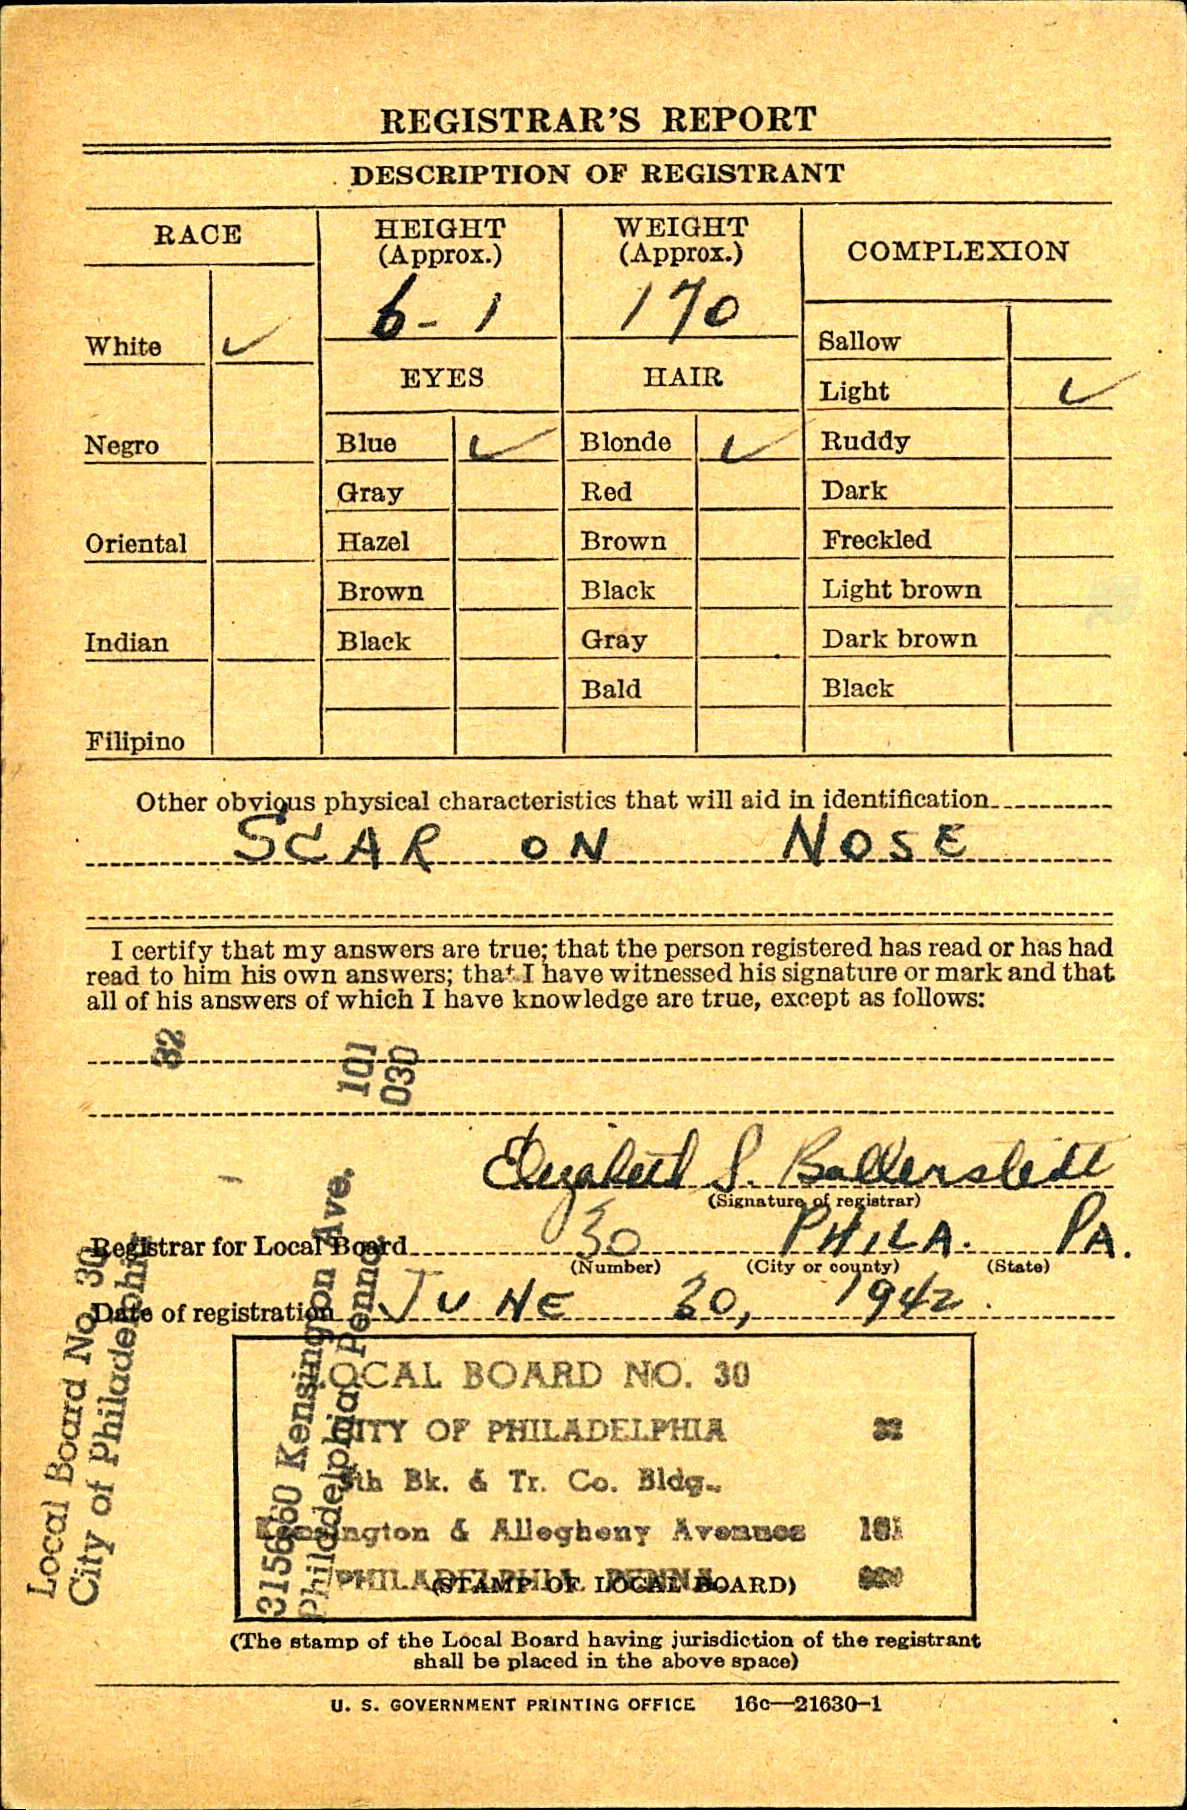 REGISTRAR'S REPORT
DESCRIPTION OF REGISTRANT
RACE
HEIGHT
(Approx.)
WEIGHT
(Approx.)
COMPLEXION
6-1
170
White ✓
Sallow
EYES
HAIR
Light ✓
Negro
Blue ✓
Blonde ✓
Ruddy
Gray
Red
Dark
Oriental
Hazel
Brown
Freckled
Brown
Black
Light brown
Indian
Black
Gray
Dark brown
Bald
Black
Filipino
Other obvious physical characteristics that will aid in identification
SCAR ON NOSE
I certify that my answers are true; that the person registered has read or has had
read to him his own answers; that I have witnessed his signature or mark and that
all of his answers of which I have knowledge are true, except as follows:
32
101
030
Elizabeth S. Ballerstedt
(Signature of registrar)
Registrar for Local Board 30 PHILA. PA.
(Number) (City or county) (State)
Date of registration JUNE 30, 1942.
Local Board No. 30
City of Philadelphia
Kensington Ave.
Philadelphia, Penna.
LOCAL BOARD NO. 30
CITY OF PHILADELPHIA 32
Bk. & Tr. Co. Bldg.,
Kensington & Allegheny Avenues 101
PHILADELPHIA PENNA.
(STAMP OF LOCAL BOARD)
(The stamp of the Local Board having jurisdiction of the registrant
shall be placed in the above space)
U. S. GOVERNMENT PRINTING OFFICE 16c—21630-1